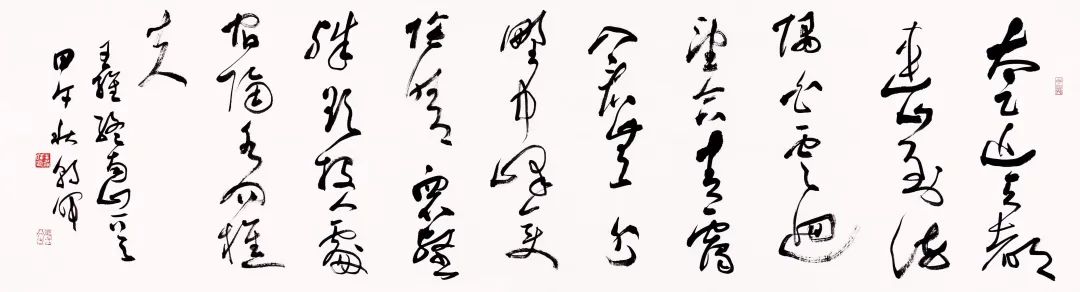 太乙近天都
連山到海
隅白雲迴
望合青靄
入看無分
野中峰變
陰晴眾壑
殊欲投人處
宿隔水问樵
夫
王維終南山一首
甲午秋